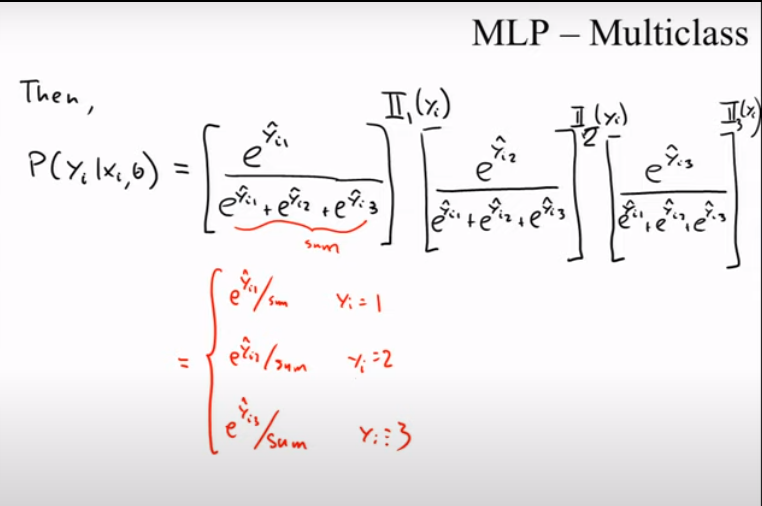 MLP – Multiclass
Then,
P(yᵢ|xᵢ,θ) = [e^ŷᵢ₁ / (e^ŷᵢ₁ + e^ŷᵢ₂ + e^ŷᵢ₃)]^𝕀₁(yᵢ) [e^ŷᵢ₂ / (e^ŷᵢ₁ + e^ŷᵢ₂ + e^ŷᵢ₃)]^𝕀₂(yᵢ) [e^ŷᵢ₃ / (e^ŷᵢ₁ + e^ŷᵢ₂ + e^ŷᵢ₃)]^𝕀₃(yᵢ)
sum
= { e^ŷᵢ₁/sum yᵢ = 1
e^ŷᵢ₂/sum yᵢ = 2
e^ŷᵢ₃/sum yᵢ = 3